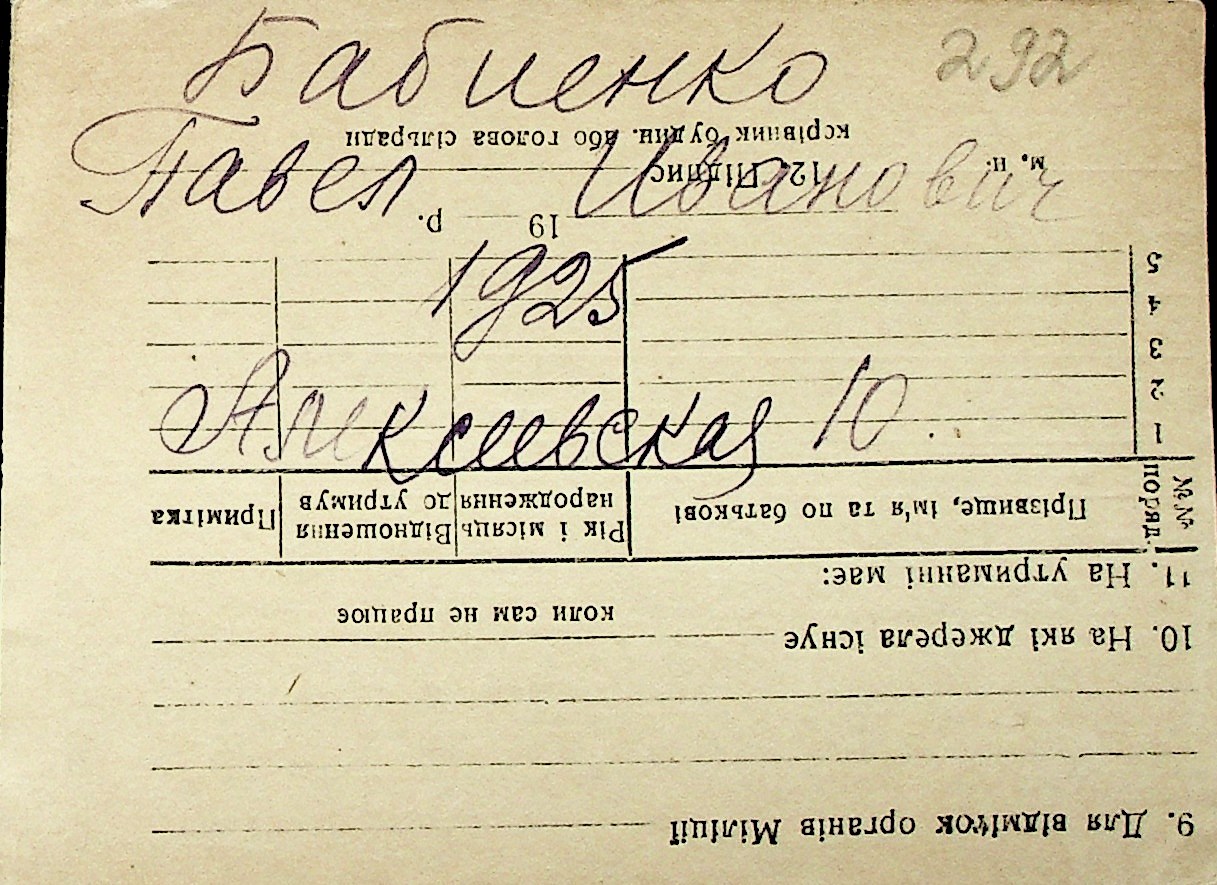 292
Бабиенко
Павел Иванович
1925
Алексеевская 10.
9. Для відміток органів Міліції
10. На які джерела існує
коли сам не працює
11. На утриманні має:
№№ поряд. Прізвище, ім'я та по батькові Рік і місяць народження Відношення до утримув Примітка
1
2
3
4
5
19 р.
м. п. 12. Підпис
керівник будин. або голова сільради